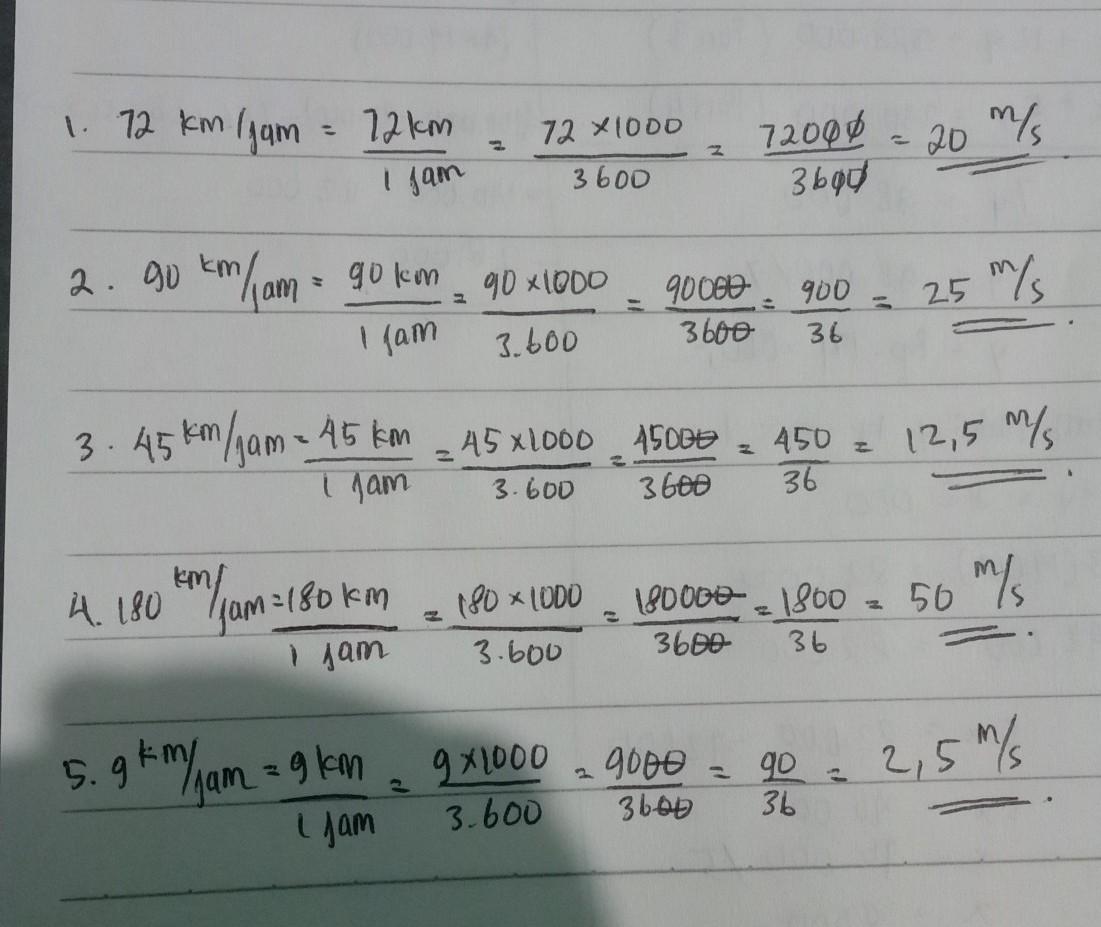 1. 72 km/jam = 72 km / 1 jam = 72 x 1000 / 3600 = 72000 / 3600 = 20 m/s.
2. 90 km/jam = 90 km / 1 jam = 90 x 1000 / 3.600 = 90000 / 3600 = 900 / 36 = 25 m/s.
3. 45 km/jam = 45 km / 1 jam = 45 x 1000 / 3.600 = 45000 / 3600 = 450 / 36 = 12,5 m/s.
4. 180 km/jam = 180 km / 1 jam = 180 x 1000 / 3.600 = 180000 / 3600 = 1800 / 36 = 50 m/s.
5. 9 km/jam = 9 km / 1 jam = 9 x 1000 / 3.600 = 9000 / 3600 = 90 / 36 = 2,5 m/s.